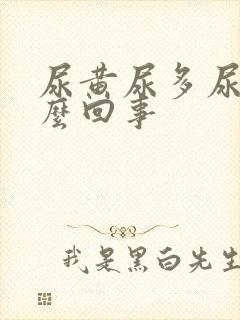 尿黄尿多尿
麼回事
我是黑白先生